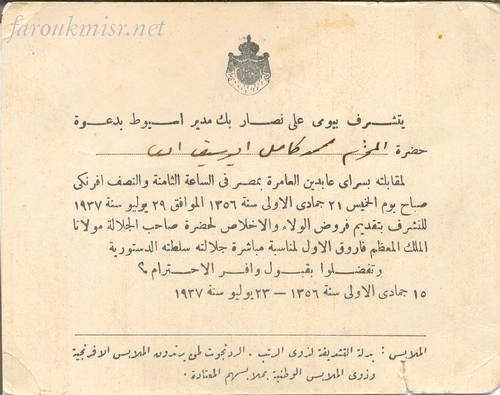 faroukmisr.net
يتشرف بيومى على نصار بك مدير اسيوط بدعوة
حضرة المحترم محمد كامل
لمقابلته بسراى عابدين العامرة بمصر فى الساعة الثامنة والنصف افرنكى
صباح يوم الخميس ٢١ جمادى الاولى سنة ١٣٥٦ الموافق ٢٩ يوليو سنة ١٩٣٧
للتشرف بتقديم فروض الولاء والاخلاص لحضرة صاحب الجلالة مولانا
الملك المعظم فاروق الاول لمناسبة مباشرة جلالته سلطته الدستورية
وتفضلوا بقبول وافر الاحترام ؟
١٥ جمادى الاولى سنة ١٣٥٦ — ٢٣ يوليو سنة ١٩٣٧
الملابس : بدلة التشريفة لذوى الرتب . الردنجوت لمن يرتدون الملابس الافرنجية
وذوى الملابس الوطنية بملابسهم المعتادة .